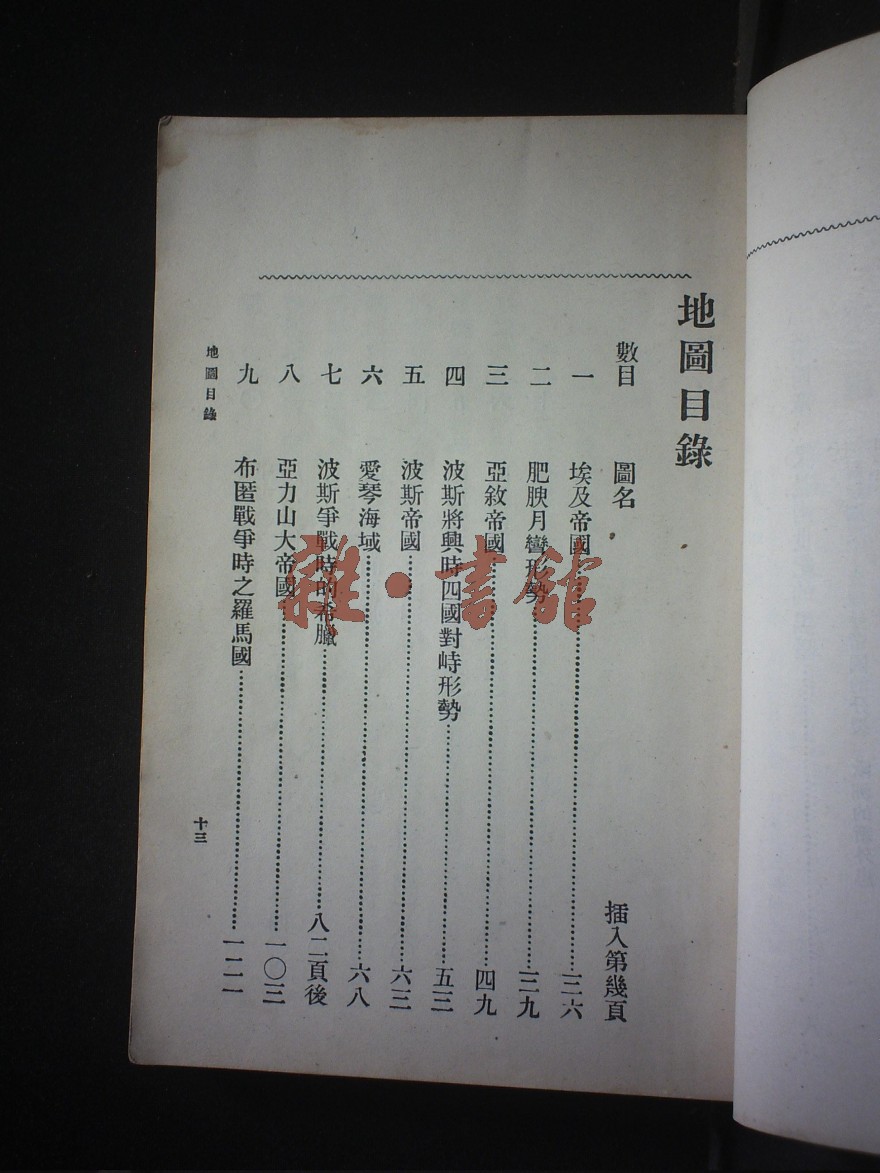 地圖目錄
數目 圖名 插入第幾頁
一 埃及帝國……三六
二 肥腴月彎形勢……三九
三 亞敘帝國……四九
四 波斯將興時四國對峙形勢……五三
五 波斯帝國……六三
六 愛琴海域……六八
七 波斯爭戰時的希臘……八二頁後
八 亞力山大帝國……一〇三
九 布匿戰爭時之羅馬國……一二一
地圖目錄 十三
雜·書館